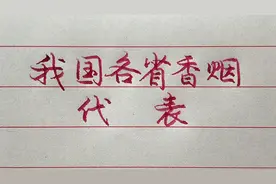 我国各省香烟
代表